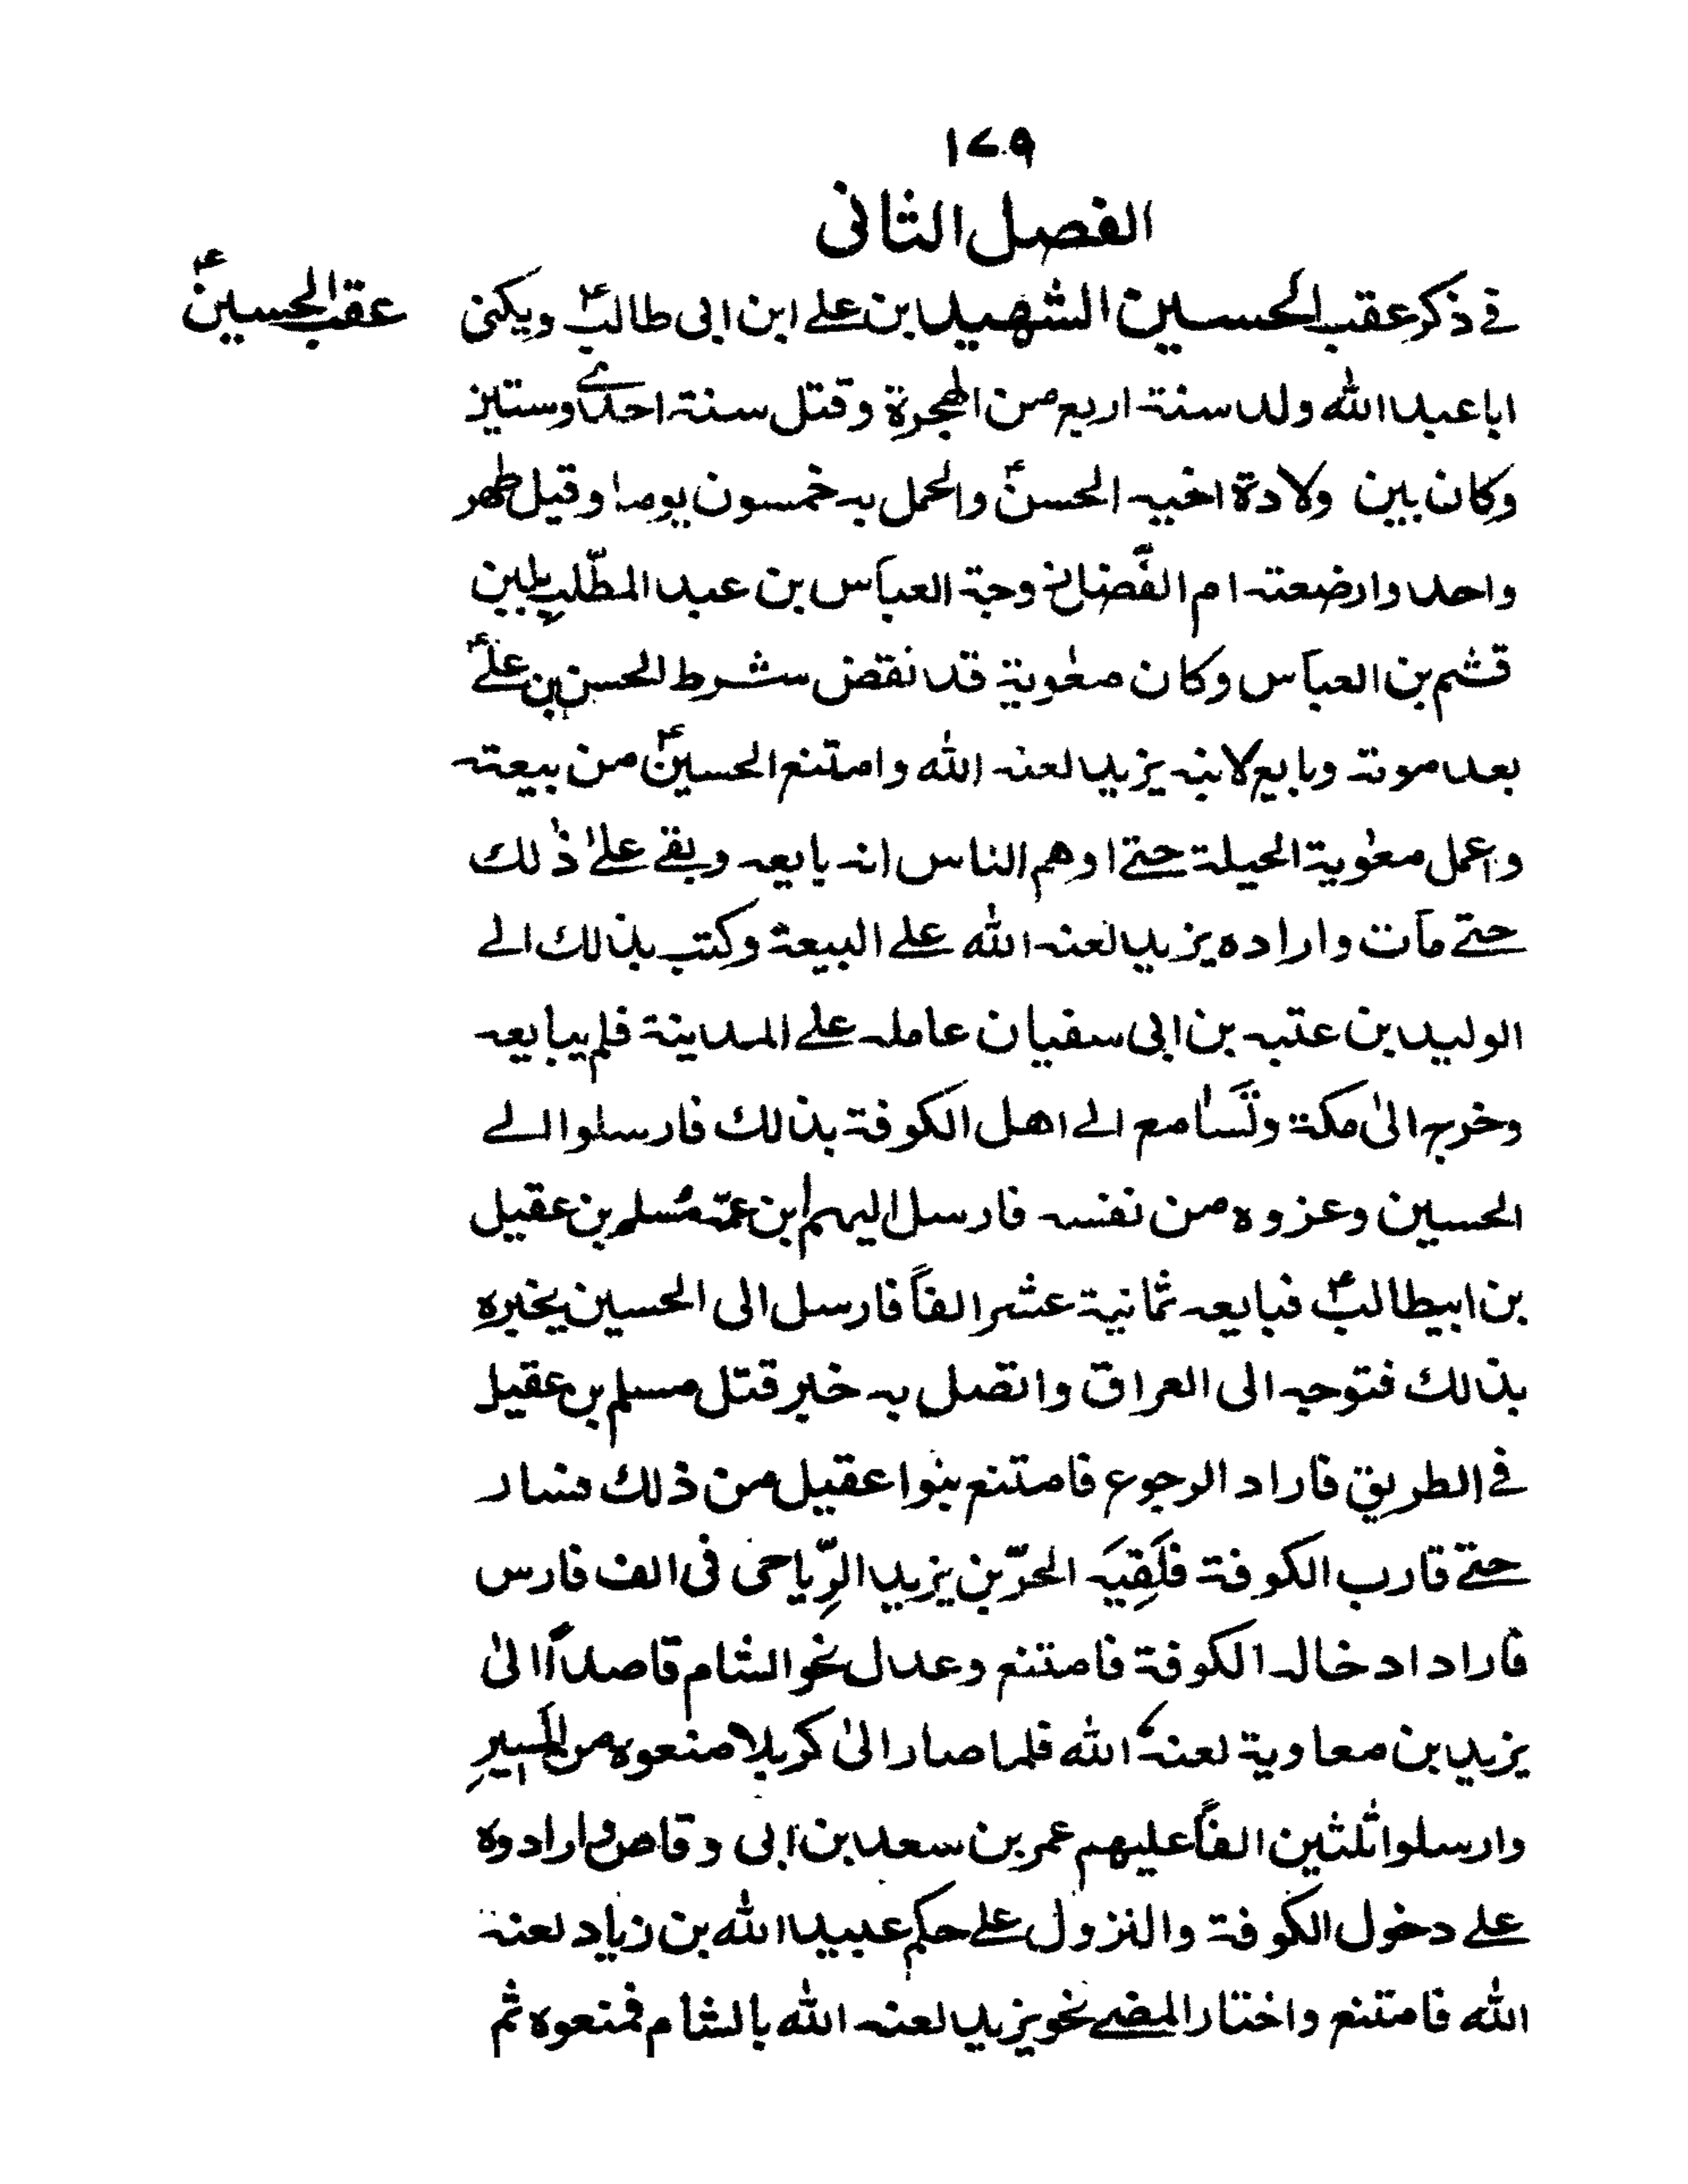 ١٧٩
الفصل الثانی
فے ذکر عقب الحسین الشهید ابن علے ابن ابی طالبؑ ویکنی
عقب الحسینؑ
ابا عبد اللّٰه ولد سنة اربع من الهجرة وقتل سنة احدے وستین
وکان بین ولادة اخیه الحسنؑ والحمل به خمسون یوما وقیل طهر
واحد وارضعته ام الفَضل زوجة العباس بن عبد المطّلب بلبن
قثم بن العباس وکان معٰویة قد نقض شرط الحسن بن علےؑ
بعد موته وبایع لابنه یزید لعنه اللّٰه وامتنع الحسینؑ من بیعته
واعمل معٰویة الحیلة حتے اوهم الناس انه بایعه وبقے علےٰ ذٰلك
حتے مات واراده یزید لعنه اللّٰه علے البیعة وکتب بذالك الے
الولید بن عتبه بن ابی سفیان عامله علے المدینة فلم یبایعه
وخرج الیٰ مکة وتَسامع الے اهل الکوفة بذالك فارسلوا الے
الحسین وعزوه من نفسه فارسل الیهم ابن عمّه مُسلم بن عقیل
بن ابیطالبؑ فبایعه ثمانیة عشر الفاً فارسل الی الحسین یخبره
بذالك فتوجه الی العراق واتصل به خبر قتل مسلم بن عقیل
فے الطریق فاراد الرجوع فامتنع بنوا عقیل من ذلك فسار
حتے قارب الکوفة فَلَقِیَه الحرّ بن یزید الرِّیاحی فی الف فارس
فاراد ادخاله الکوفة فامتنع وعدل نحو الشام قاصداً الیٰ
یزید بن معاویة لعنهُ اللّٰه فلما صار الیٰ کربلا منعوه من المَسیرِ
وارسلوا ثلٰثین الفاً علیهم عمر بن سعد بن ابی وقاص وارادوه
علے دخول الکوفة والنزول علے حکم عبید اللّٰه بن زیاد لعنه
اللّٰه فامتنع واختار المضے نحو یزید لعنه اللّٰه بالشام فمنعوه ثم